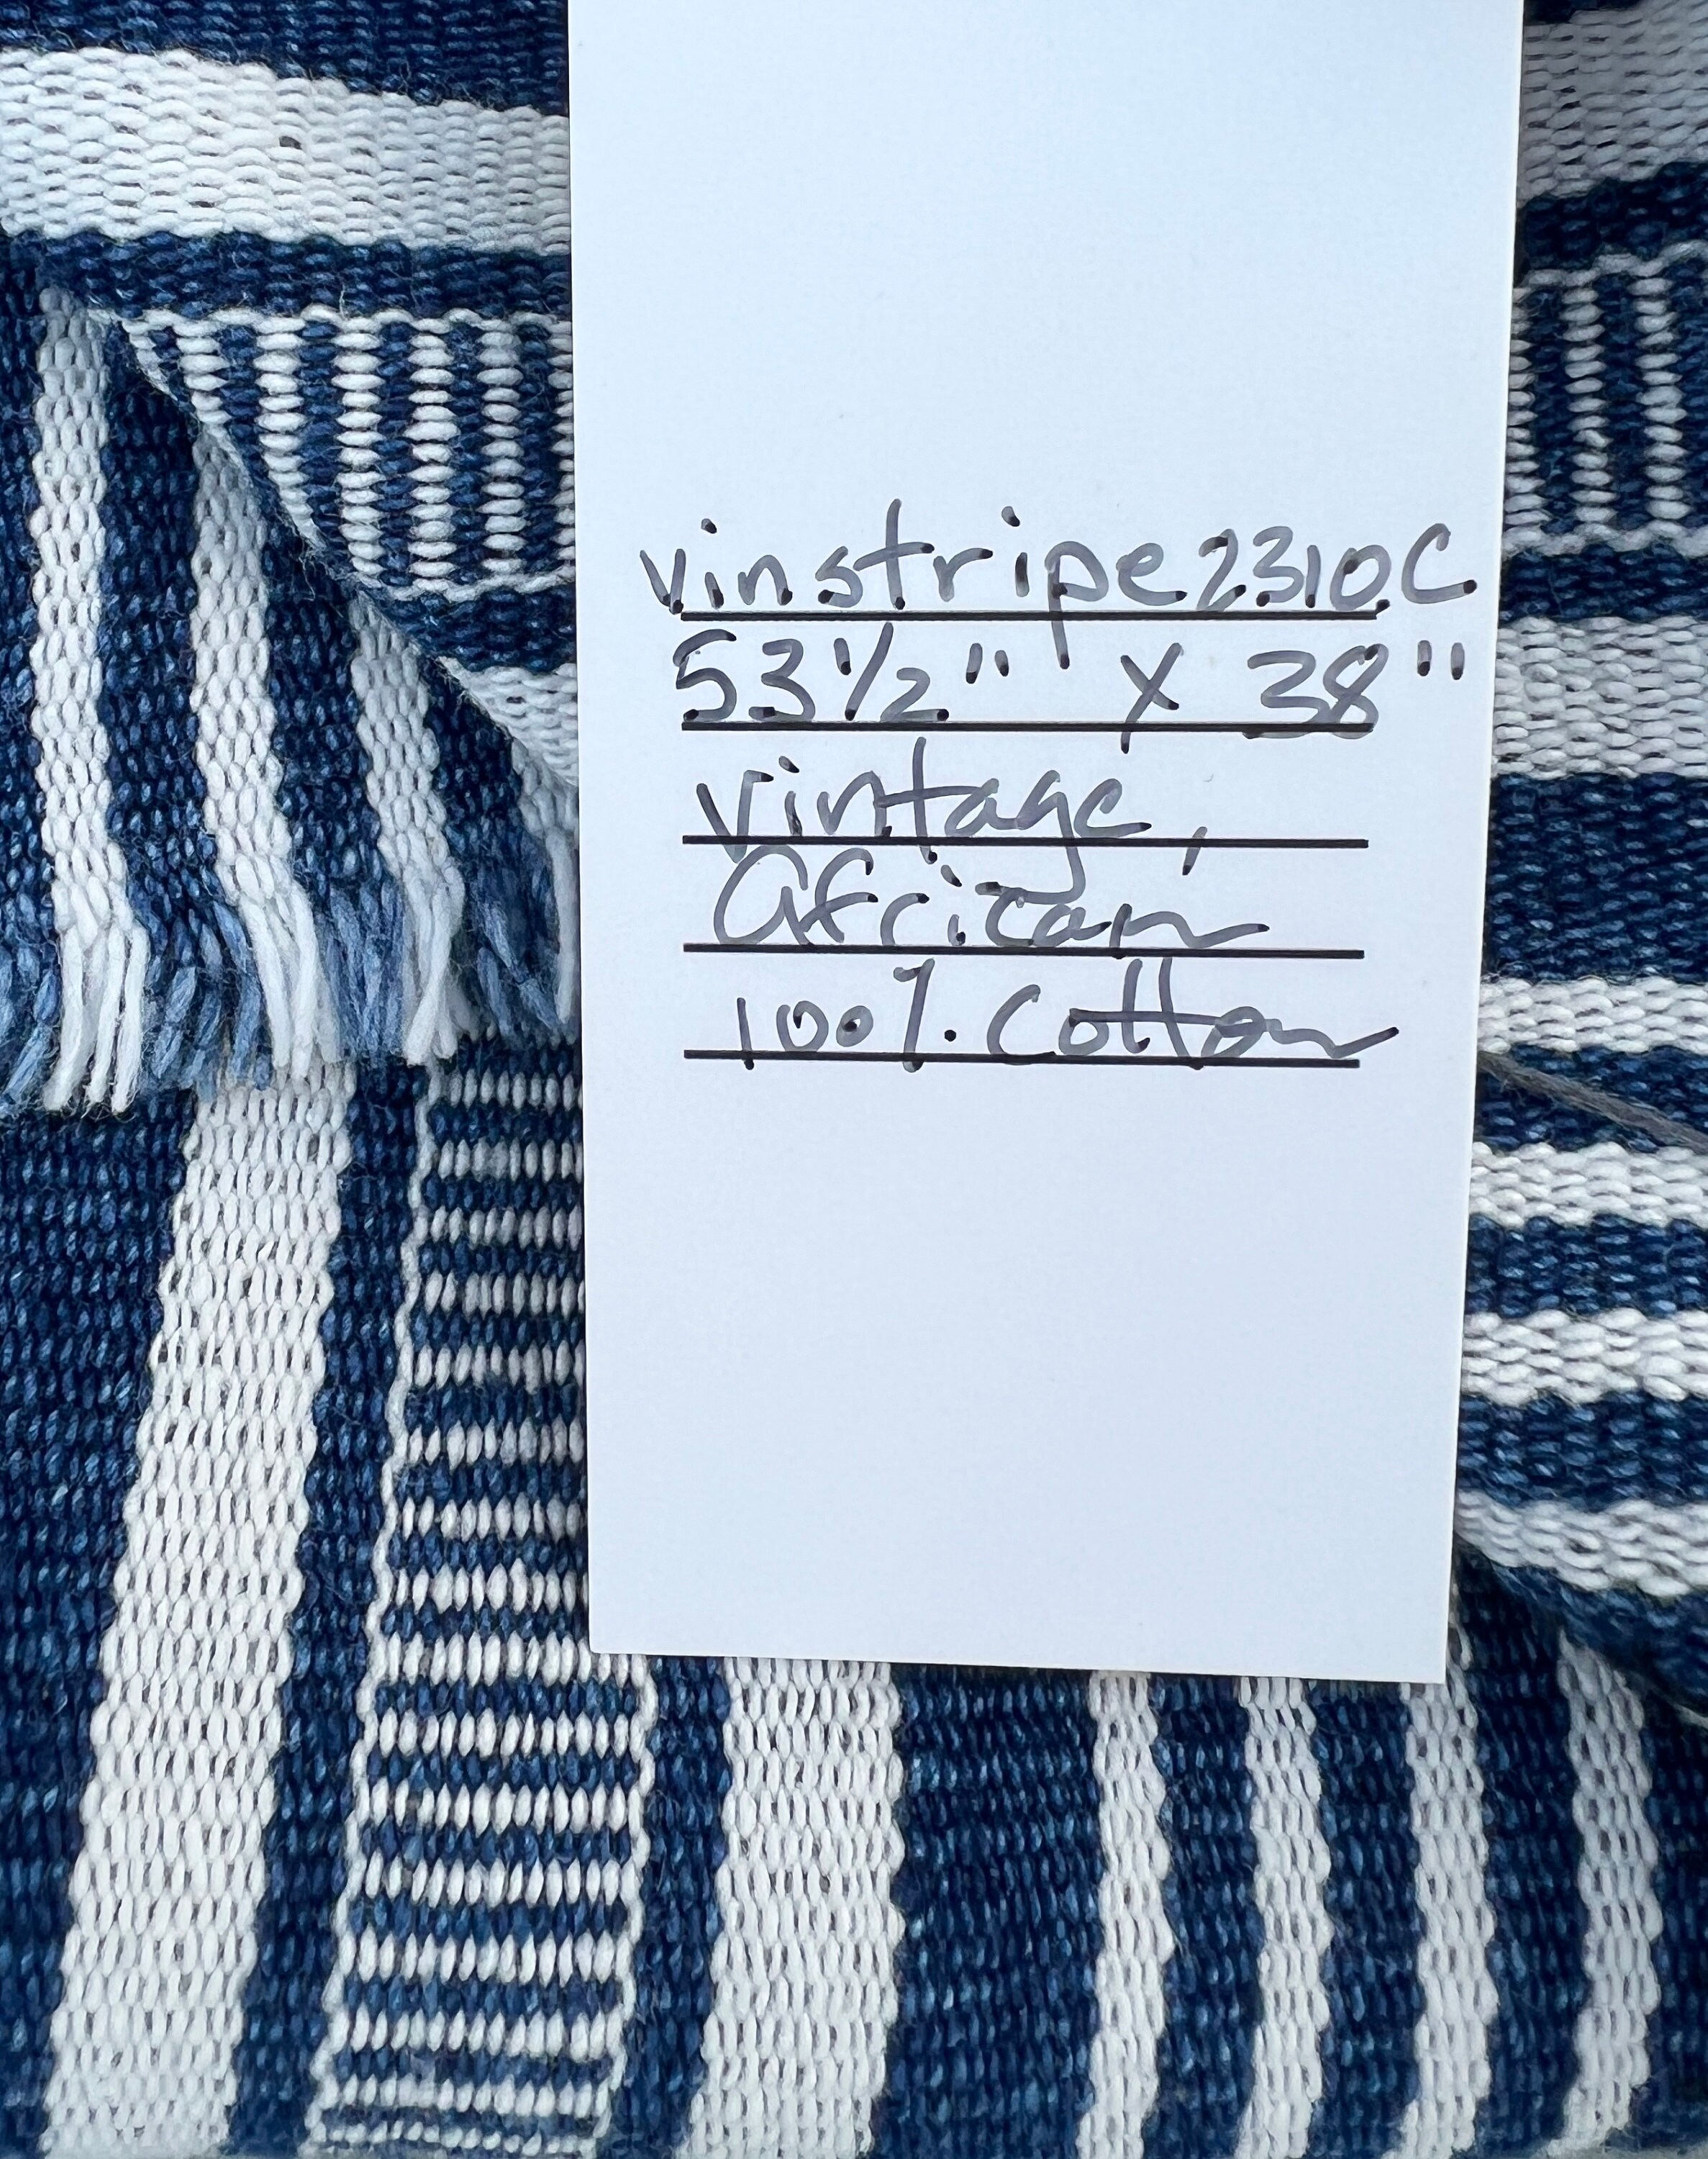 vinstripe2310C
53 1/2" x 38"
vintage,
African
100% Cotton